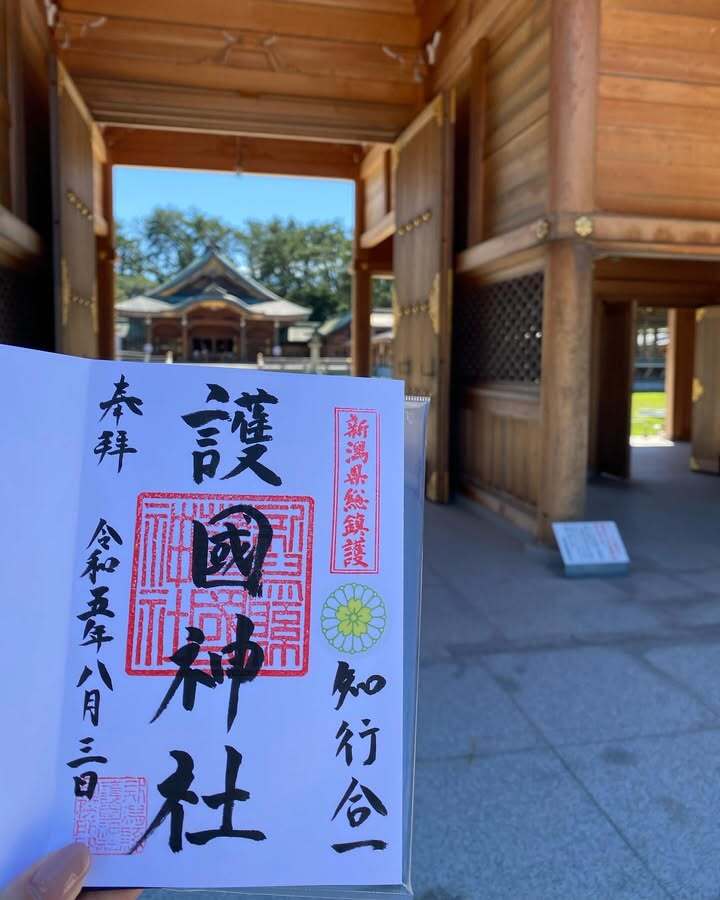 新潟県総鎮護
知行合一
護國神社
奉拝
令和五年八月三日